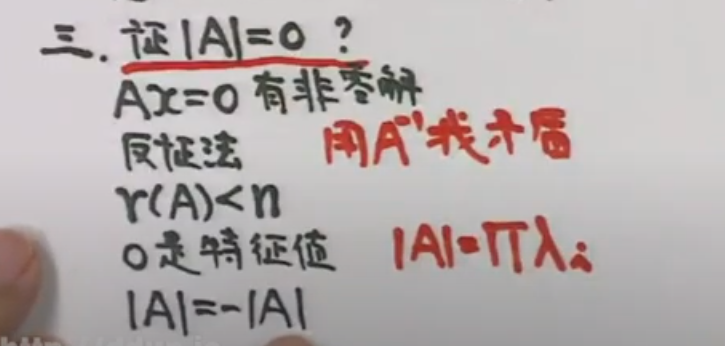 三. 证|A|=0 ?
Ax=0 有非零解
反证法 用A⁻¹找矛盾
r(A)<n
0是特征值 |A|=∏λi
|A|=-|A|